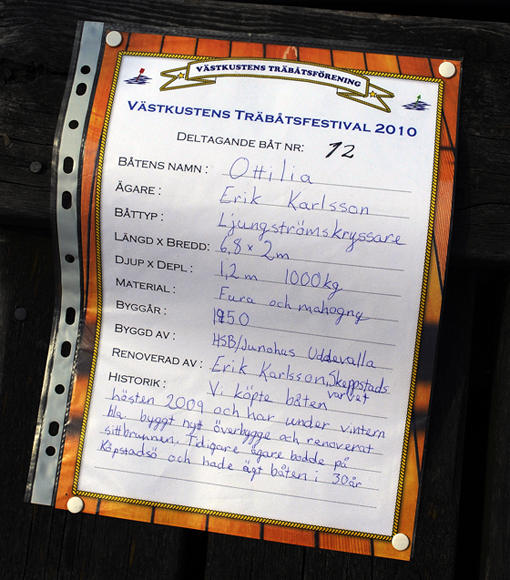 VÄSTKUSTENS TRÄBÅTSFÖRENING
VÄSTKUSTENS TRÄBÅTSFESTIVAL 2010
DELTAGANDE BÅT NR: 12
BÅTENS NAMN: Ottilia
ÄGARE: Erik Karlsson
BÅTTYP: Ljungströmskryssare
LÄNGD X BREDD: 6,8 x 2m
DJUP X DEPL: 1,2 m 1000 kg
MATERIAL: Fura och mahogny
BYGGÅR: 1950
BYGGD AV: HSB/Junohus Uddevalla
RENOVERAD AV: Erik Karlsson, Skeppstads
varvet
HISTORIK: Vi köpte båten
hösten 2009 och har under vintern
bla. byggt nytt överbygge och renoverat
sittbrunnen. Tidigare ägare bodde på
Köpstadsö och hade ägt båten i 30 år